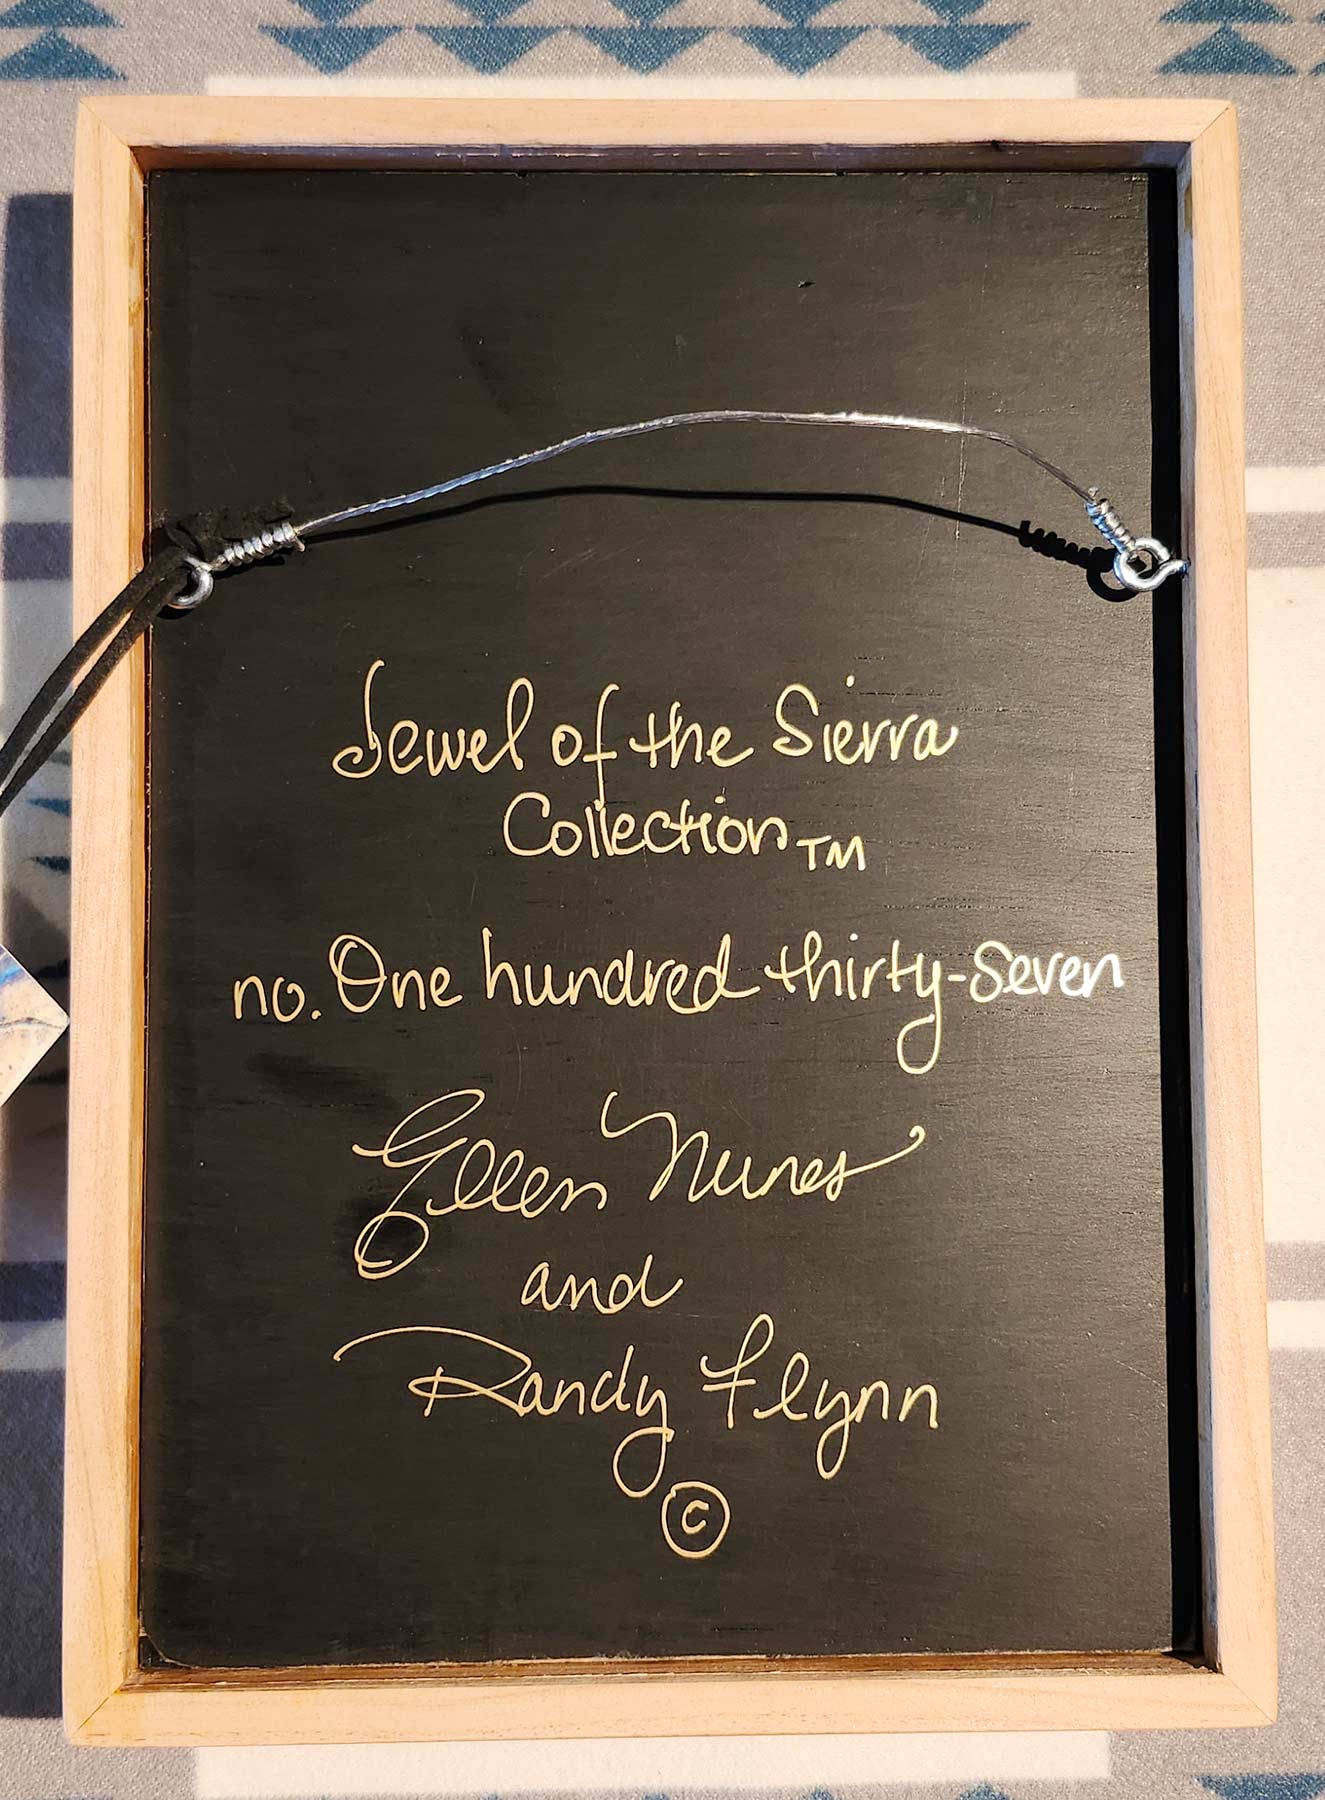 Jewel of the Sierra
Collection TM
no. One hundred thirty-seven
Ellen Nunes
and
Randy Flynn
©